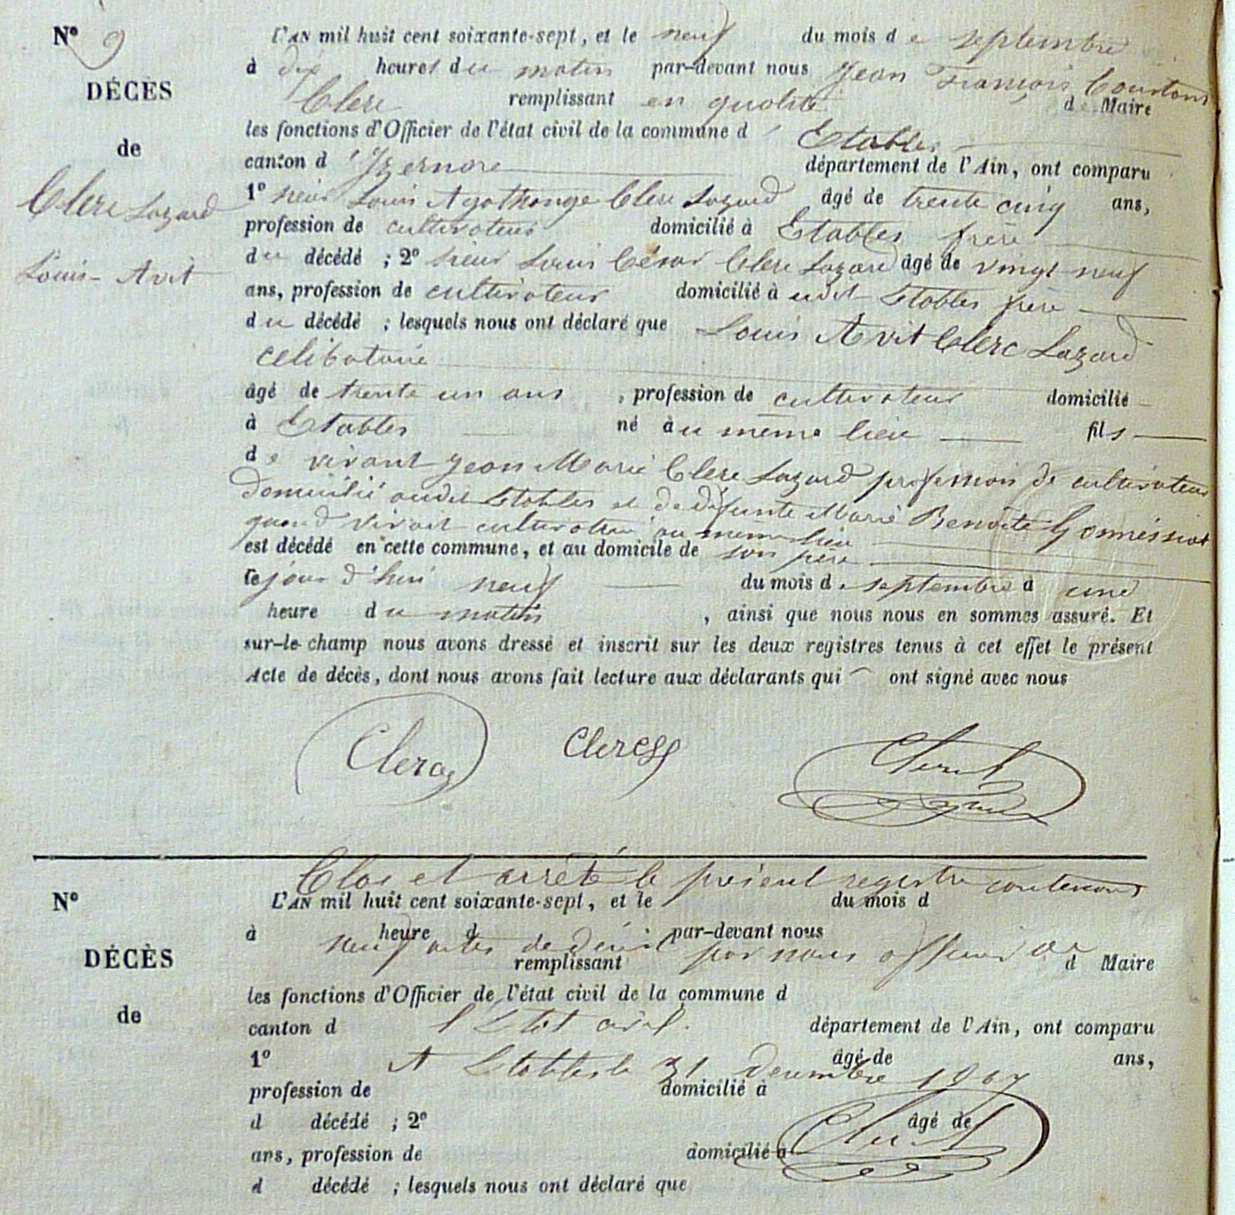 N° 9
DÉCÈS
de
Clerc Lazard
Louis-Avit
L'AN mil huit cent soixante-sept, et le neuf du mois de septembre
à dix heures du matin par-devant nous Jean François Constant
Clerc remplissant en qualité d Maire
les fonctions d'Officier de l'état civil de la commune d'Etables
canton d'Izernore département de l'Ain, ont comparu
1° sieur Louis Agathange Clerc Lazard âgé de trente cinq ans,
profession de cultivateur domicilié à Etables frère
du décédé ; 2° sieur Louis César Clerc Lazard âgé de vingt neuf
ans, profession de cultivateur domicilié à udit Etables frère
du décédé ; lesquels nous ont déclaré que Louis Avit Clerc Lazard
celibataire
âgé de trente un ans , profession de cultivateur domicilié
à Etables né à u même lieu fils
de vivant Jean Marie Clerc Lazard profession de cultivateur
domicilié audit Etables et de défunte Marie Benoite Gonnessiat
quand vivait cultivatrice au même lieu
est décédé en cette commune, et au domicile de son père
le jour d'hui neuf du mois de septembre à une
heure du matin , ainsi que nous nous en sommes assuré. Et
sur-le-champ nous avons dressé et inscrit sur les deux registres tenus à cet effet le présent
Acte de décès, dont nous avons fait lecture aux déclarants qui ont signé avec nous
Clerc Clerc Clerc
Clos et arrêté le présent registre contenant
N° L'AN mil huit cent soixante-sept, et le du mois d
à heure d par-devant nous
DÉCÈS
neuf actes de décès par nous officier de
remplissant d Maire
les fonctions d'Officier de l'état civil de la commune d
de
canton d département de l'Ain, ont comparu
l'Etat civil.
1° âgé de ans,
A Etables le 31 décembre 1867
profession de domicilié à
d décédé ; 2° âgé de
Clerc
ans, profession de domicilié à
d décédé ; lesquels nous ont déclaré que